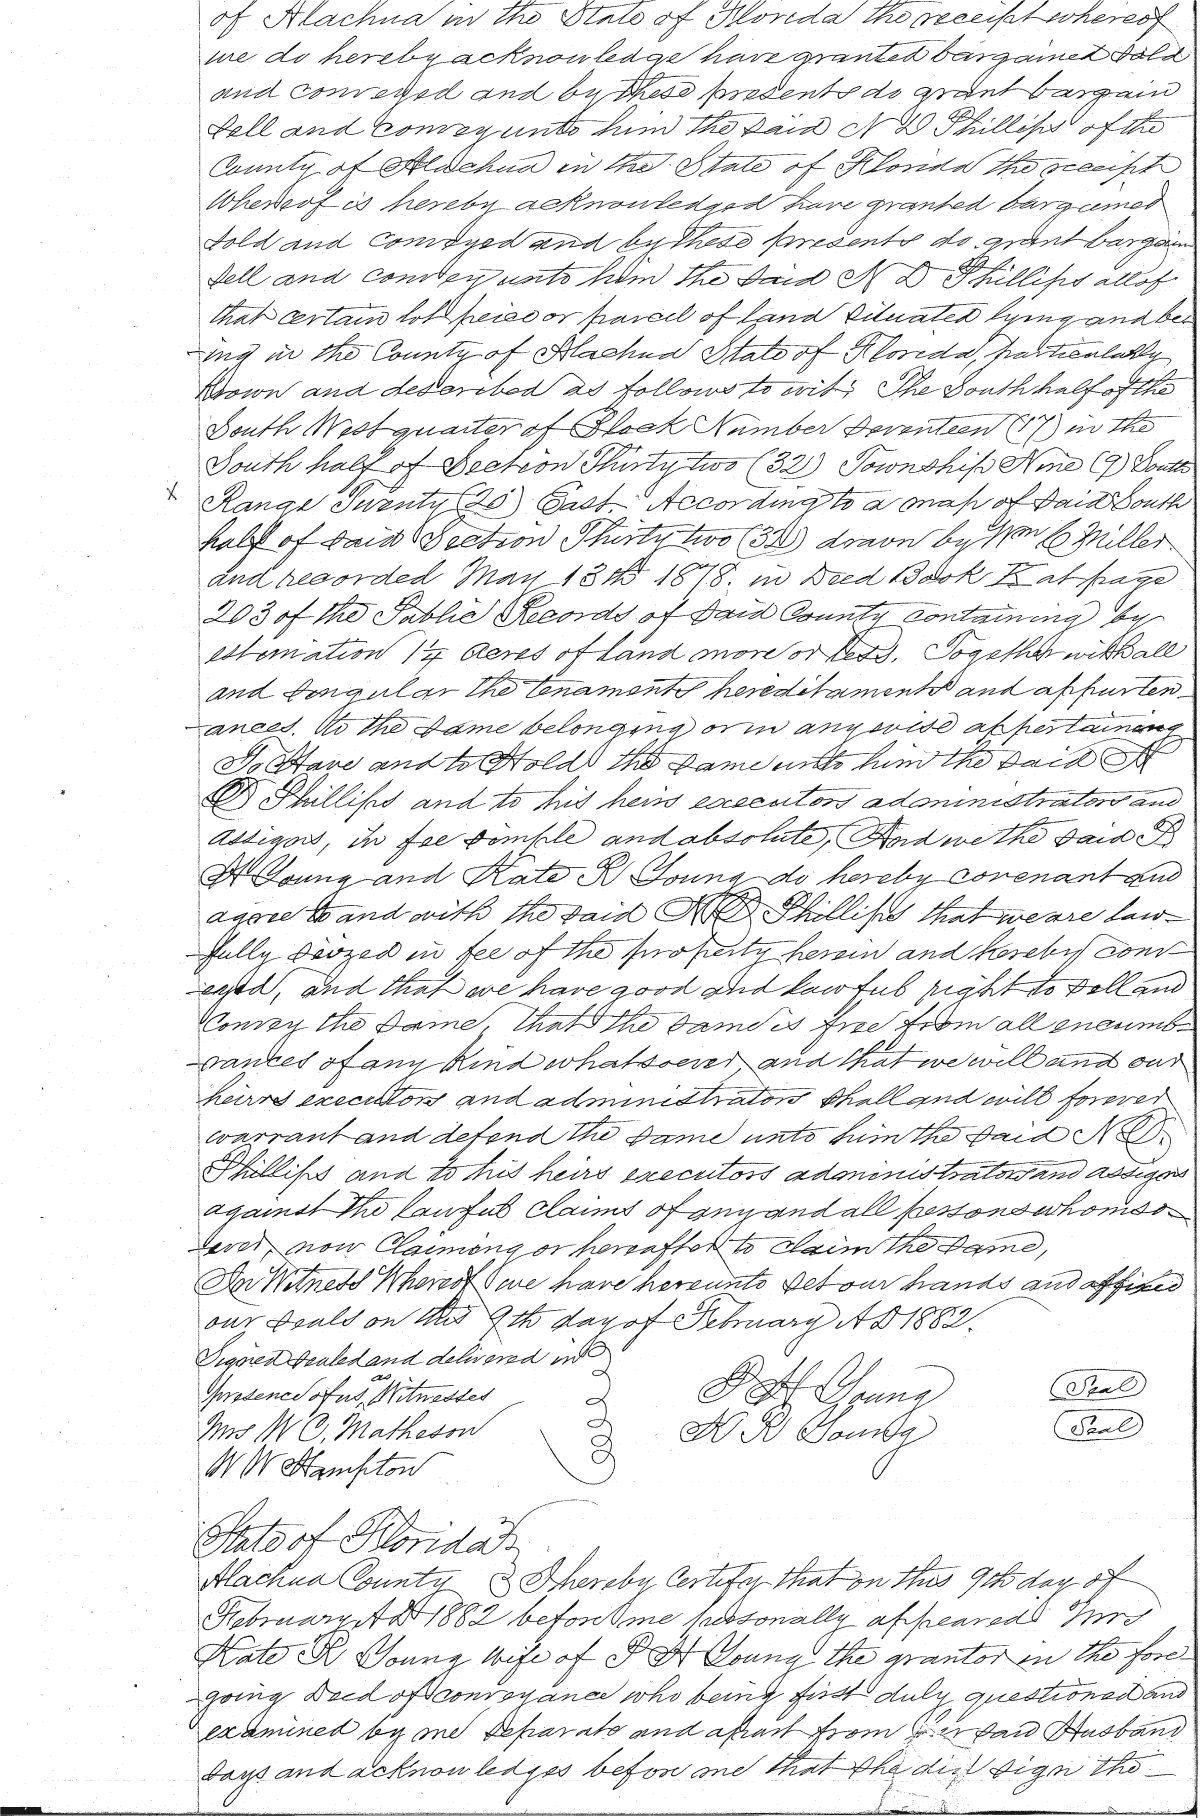 of Alachua in the State of Florida the receipt whereof
we do hereby acknowledge have granted bargained sold
and conveyed and by these presents do grant bargain
sell and convey unto him the said N D Phillips of the
County of Alachua in the State of Florida the receipt
whereof is hereby acknowledged have granted bargained
sold and conveyed and by these presents do grant bargain
sell and convey unto him the said N D Phillips all of
that certain lot peice or parcel of land situated lying and be
-ing in the County of Alachua State of Florida, particularly
known and described as follows to wit; The South half of the
South West quarter of Block Number Seventeen (17) in the
South half of Section Thirty two (32) Township Nine (9) South
x Range Twenty (20) East. According to a map of said South
half of said Section Thirty two (32) drawn by Wm C Miller
and recorded May 13th 1878. in Deed Book K at page
203 of the Public Records of said County containing by
estimation 1¼ acres of land more or less. Together with all
and singular the tenaments hereditaments and appurten-
-ances. to the same belonging or in anywise appertaining
To Have and to Hold the same unto him the said N
D Phillips and to his heirs executors administrators and
assigns, in fee simple and absolute, And we the said P
H Young and Kate R Young do hereby covenant and
agree to and with the said N D Phillips that we are law-
-fully siezed in fee of the property herein and hereby conv-
-eyed, and that we have good and lawful right to sell and
convey the same, that the same is free from all encumb-
-rances of any kind whatsoever, and that we will and our
heirs executors and administrators shall and will forever
warrant and defend the same unto him the said N D.
Phillips and to his heirs executors administrators and assigns
against the lawful claims of any and all persons whomso-
-ever, now claiming or hereafter to claim the same,
In Witness Whereof we have hereunto set our hands and affixed
our seals on this 9th day of February A D 1882.
Signed sealed and delivered in
presence of us, as Witnesses P H Young Seal
Mrs W C. Matheson K R Young Seal
W W Hampton
State of Florida
Alachua County I hereby certify that on this 9th day of
February, A D 1882 before me personally appeared Mrs
Kate R Young wife of P H Young the grantor in the fore-
-going Deed of conveyance who being first duly questioned and
examined by me separate and apart from her said Husband
says and acknowledges before me that she did sign the